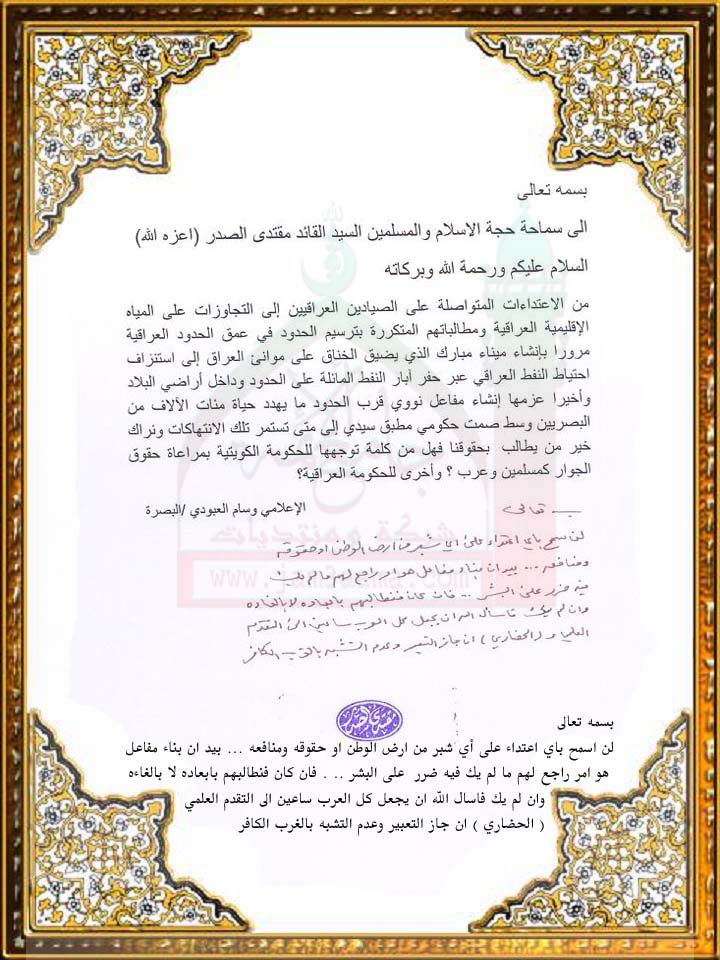 بسمه تعالى
الى سماحة حجة الاسلام والمسلمين السيد القائد مقتدى الصدر (اعزه الله)
السلام عليكم ورحمة الله وبركاته
من الاعتداءات المتواصلة على الصيادين العراقيين إلى التجاوزات على المياه
الإقليمية العراقية ومطالباتهم المتكررة بترسيم الحدود في عمق الحدود العراقية
مرورا بإنشاء ميناء مبارك الذي يضيق الخناق على موانئ العراق إلى استنزاف
احتياط النفط العراقي عبر حفر آبار النفط المائلة على الحدود وداخل أراضي البلاد
وأخيرا عزمها إنشاء مفاعل نووي قرب الحدود ما يهدد حياة مئات الآلاف من
البصريين وسط صمت حكومي مطبق سيدي إلى متى تستمر تلك الانتهاكات ونراك
خير من يطالب بحقوقنا فهل من كلمة توجهها للحكومة الكويتية بمراعاة حقوق
الجوار كمسلمين وعرب ؟ وأخرى للحكومة العراقية؟
الإعلامي وسام العبودي /البصرة
بسمه تعالى
لن اسمح باي اعتداء على أي شبر من ارض الوطن او حقوقه
ومنافعه ... بيد ان بناء مفاعل هو امر راجع لهم ما لم يك
فيه ضرر على البشر ... فان كان فنطالبهم بابعاده لا بالغاءه
وان لم يك فاسأل الله ان يجعل كل العرب ساعين الى التقدم
العلمي و (الحضاري) ان جاز التعبير وعدم التشبه بالغرب الكافر
شبكة ومنتديات
جامع الأئمة
www.jam3aama.com
مقتدى الصدر
بسمه تعالى
لن اسمح باي اعتداء على أي شبر من ارض الوطن او حقوقه ومنافعه ... بيد ان بناء مفاعل
هو امر راجع لهم ما لم يك فيه ضرر على البشر .. . فان كان فنطالبهم بابعاده لا بالغاءه
وان لم يك فاسال الله ان يجعل كل العرب ساعين الى التقدم العلمي
( الحضاري ) ان جاز التعبير وعدم التشبه بالغرب الكافر